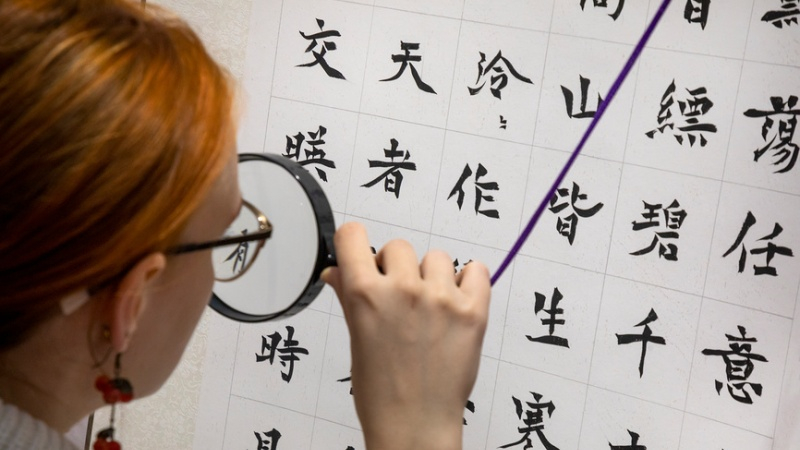 蕩任意
縹碧千
山皆生寒
泠々作
天者
交暎有時